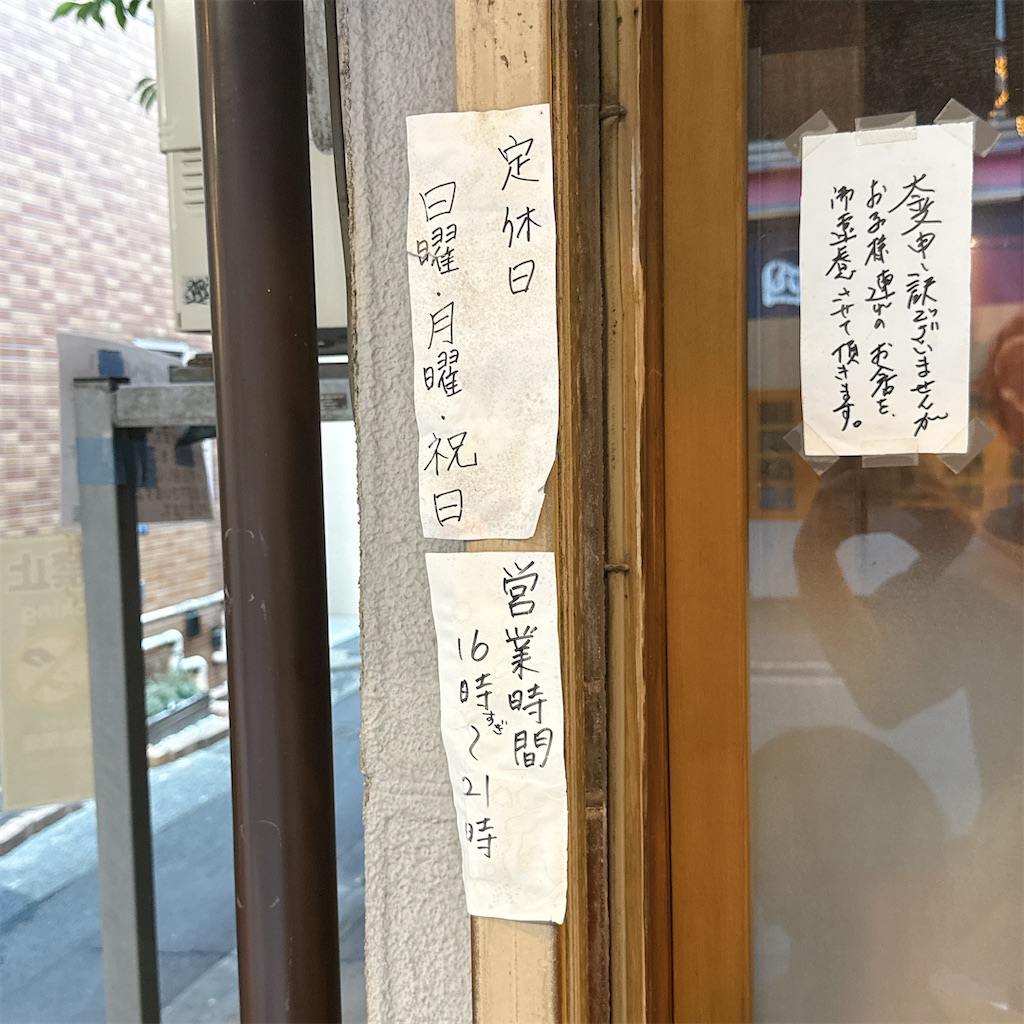 大変申し訳ございませんが
お子様連れのお客を、
御遠慮させて頂きます。
定休日
日曜・月曜・祝日
営業時間
16時すぎ〜21時
禁止